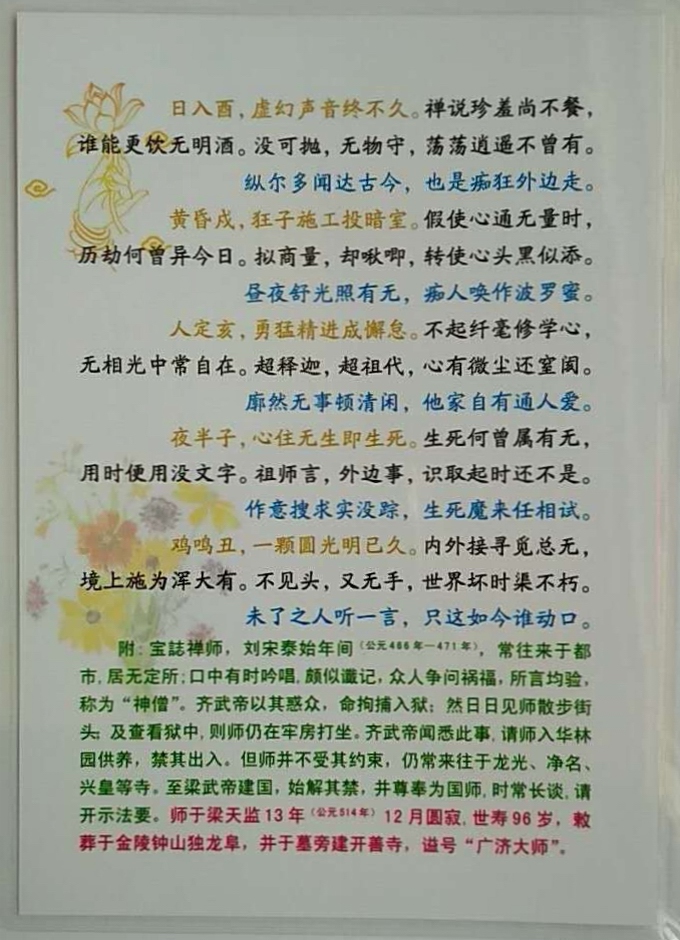 日入酉，虚幻声音终不久。禅说珍羞尚不餐，
谁能更饮无明酒。没可抛，无物守，荡荡逍遥不曾有。
纵尔多闻达古今，也是痴狂外边走。
黄昏戌，狂子施工投暗室。假使心通无量时，
历劫何曾异今日。拟商量，却啾唧，转使心头黑似添。
昼夜舒光照有无，痴人唤作波罗蜜。
人定亥，勇猛精进成懈怠。不起纤毫修学心，
无相光中常自在。超释迦，超祖代，心有微尘还窒阂。
廓然无事顿清闲，他家自有通人爱。
夜半子，心住无生即生死。生死何曾属有无，
用时便用没文字。祖师言，外边事，识取起时还不是。
作意搜求实没踪，生死魔来任相试。
鸡鸣丑，一颗圆光明已久。内外接寻觅总无，
境上施为浑大有。不见头，又无手，世界坏时渠不朽。
未了之人听一言，只这如今谁动口。
附：宝誌禅师，刘宋泰始年间（公元466年—471年），常往来于都
市，居无定所；口中有时吟唱，颇似谶记，众人争问祸福，所言均验，
称为“神僧”。齐武帝以其惑众，命拘捕入狱；然日日见师散步街
头；及查看狱中，则师仍在牢房打坐。齐武帝闻悉此事，请师入华林
园供养，禁其出入。但师并不受其约束，仍常来往于龙光、净名、
兴皇等寺。至梁武帝建国，始解其禁，并尊奉为国师，时常长谈，请
开示法要。师于梁天监13年（公元514年）12月圆寂，世寿96岁，敕
葬于金陵钟山独龙阜，并于墓旁建开善寺，谥号“广济大师”。